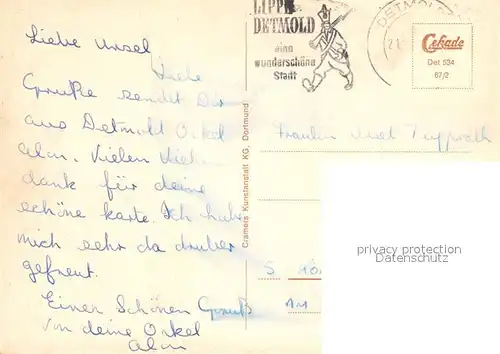 Liebe Ursel
Viele
Grüße sendet Dir
aus Detmold Onkel
Alan. Vielen Vielen
dank für deine
schöne karte. Ich habe
mich sehr da druber
gefreut.
Einen Schönen Gruß
von deine Onkel
Alan
LIPPE
DETMOLD
eine
wunderschöne
Stadt
DETMOLD
21.
Cekade
Det 534
67/2
Cramers Kunstanstalt KG, Dortmund
Fräulein Ursel
privacy protection
Datenschutz
5
Am